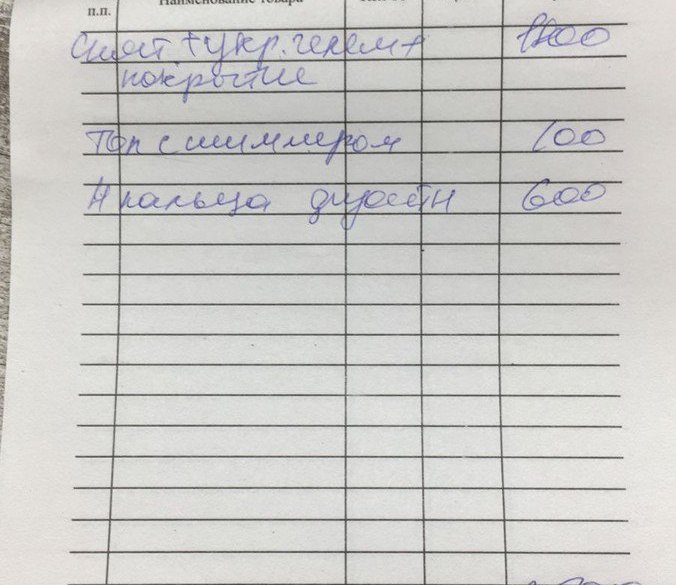 п.п. Наименование товара
Снят + укр. гелем +
покрытие
Топ с шиммером 100
4 пальца дизайн 600